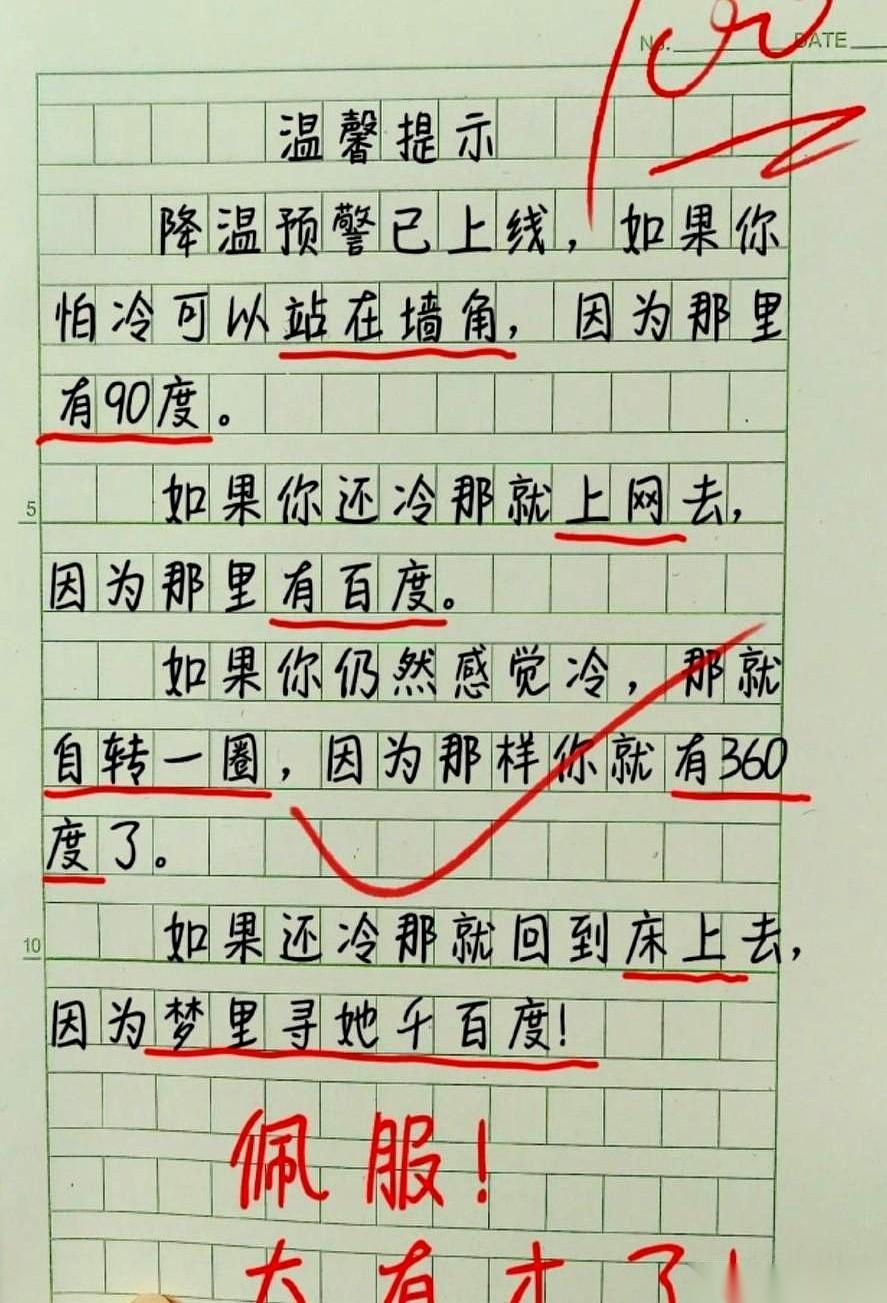 100
No. DATE
温馨提示
降温预警已上线，如果你
怕冷可以站在墙角，因为那里
有90度。
5
如果你还冷那就上网去，
因为那里有百度。
如果你仍然感觉冷，那就
自转一圈，因为那样你就有360
度了。
10
如果还冷那就回到床上去，
因为梦里寻她千百度！
佩服！
太有才了！